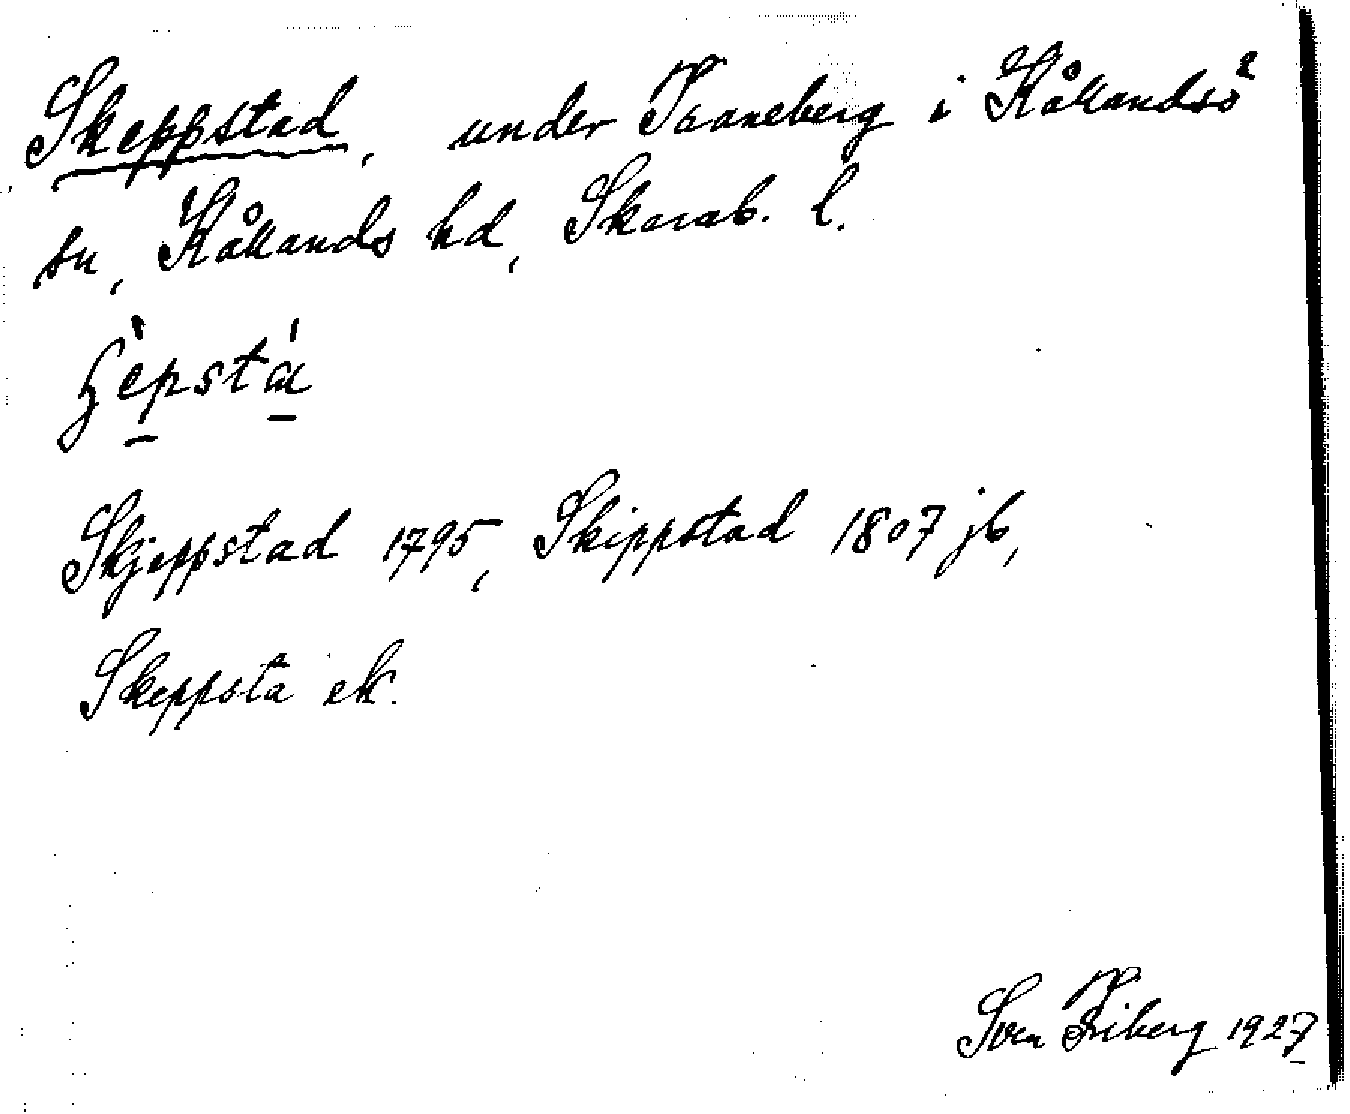 Skeppstad, under Traneberg i Kållandsö
sn, Kållands hd, Skarab. l.
ʃèpstá
Skjeppstad 1795, Skippstad 1807 jb,
Skeppsta ek.
Sven Friberg 1927